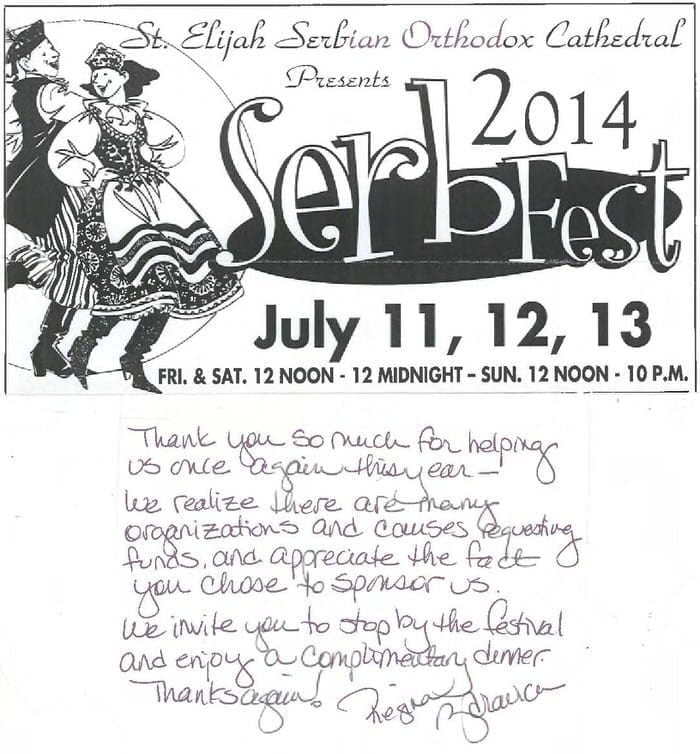 St. Elijah Serbian Orthodox Cathedral
Presents
2014
SerbFest
July 11, 12, 13
FRI. & SAT. 12 NOON - 12 MIDNIGHT – SUN. 12 NOON - 10 P.M.
Thank you so much for helping
us once again this year —
We realize there are many
organizations and causes requesting
funds, and appreciate the fact
you chose to sponsor us.
We invite you to stop by the festival
and enjoy a complimentary dinner.
Thanks again!